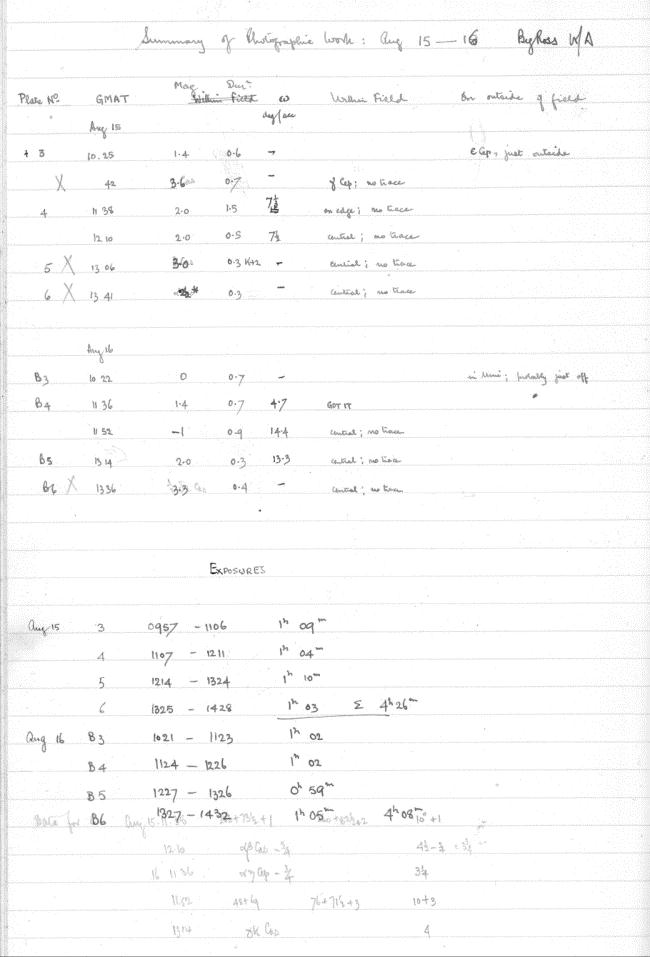 Summary of Photographic Work: Aug 15 — 16 By Ross W/A
Plate No. GMAT Mag. Durn. ω deg/sec Within Field On outside of field
Aug 15
3 10.25 1.4 0.6 – ε Cep, just outside
X 42 3.6 0.7 – γ Cep; no trace
4 11 38 2.0 1.5 7½ on edge; no trace
12 10 2.0 0.5 7½ central; no trace
5 X 13 06 3.0 0.3 – central; no trace
6 X 13 41 0.3 – central; no trace
Aug 16
B3 10 22 0 0.7 – probably just off
B4 11 36 1.4 0.7 4.7 GOT IT
11 52 –1 0.9 14.4 central; no trace
B5 13 14 2.0 0.3 13.3 central; no trace
B6 X 13 36 3.3 0.4 – central; no trace
EXPOSURES
Aug 15 3 0957 – 1106 1h 09m
4 1107 – 1211 1h 04m
5 1214 – 1324 1h 10m
6 1325 – 1428 1h 03 Σ 4h 26m
Aug 16 B3 1021 – 1123 1h 02
B4 1124 – 1226 1h 02
B5 1227 – 1326 0h 59m
B6 1327 – 1432 1h 05m 4h 08m
Data for Aug 15 10+1
12 10
16 11 36 3¼
11 52 48+69 76+71½+3 10+3
13 14 4